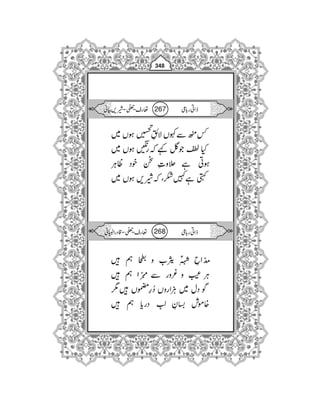 348
ذاتی رباعی 267 تعارفِ تخلصی - شیریں بیانی
کس منھ سے کہوں لائقِ تحسیں ہوں میں
کیا لطف جو گل کہے کہ رنگیں ہوں میں
ہوتی ہے حلاوتِ سخن خود ظاہر
کہتی ہے کہیں شکر، کہ شیریں ہوں میں
ذاتی رباعی 268 تعارفِ تخلصی -
مداحِ شہِ یثرب و بطحا ہم ہیں
ہر عیب و غرور سے مبرّا ہم ہیں
گو دل میں ہزاروں دُرِ مضموں ہیں مگر
خاموش بسانِ لبِ دریا ہم ہیں